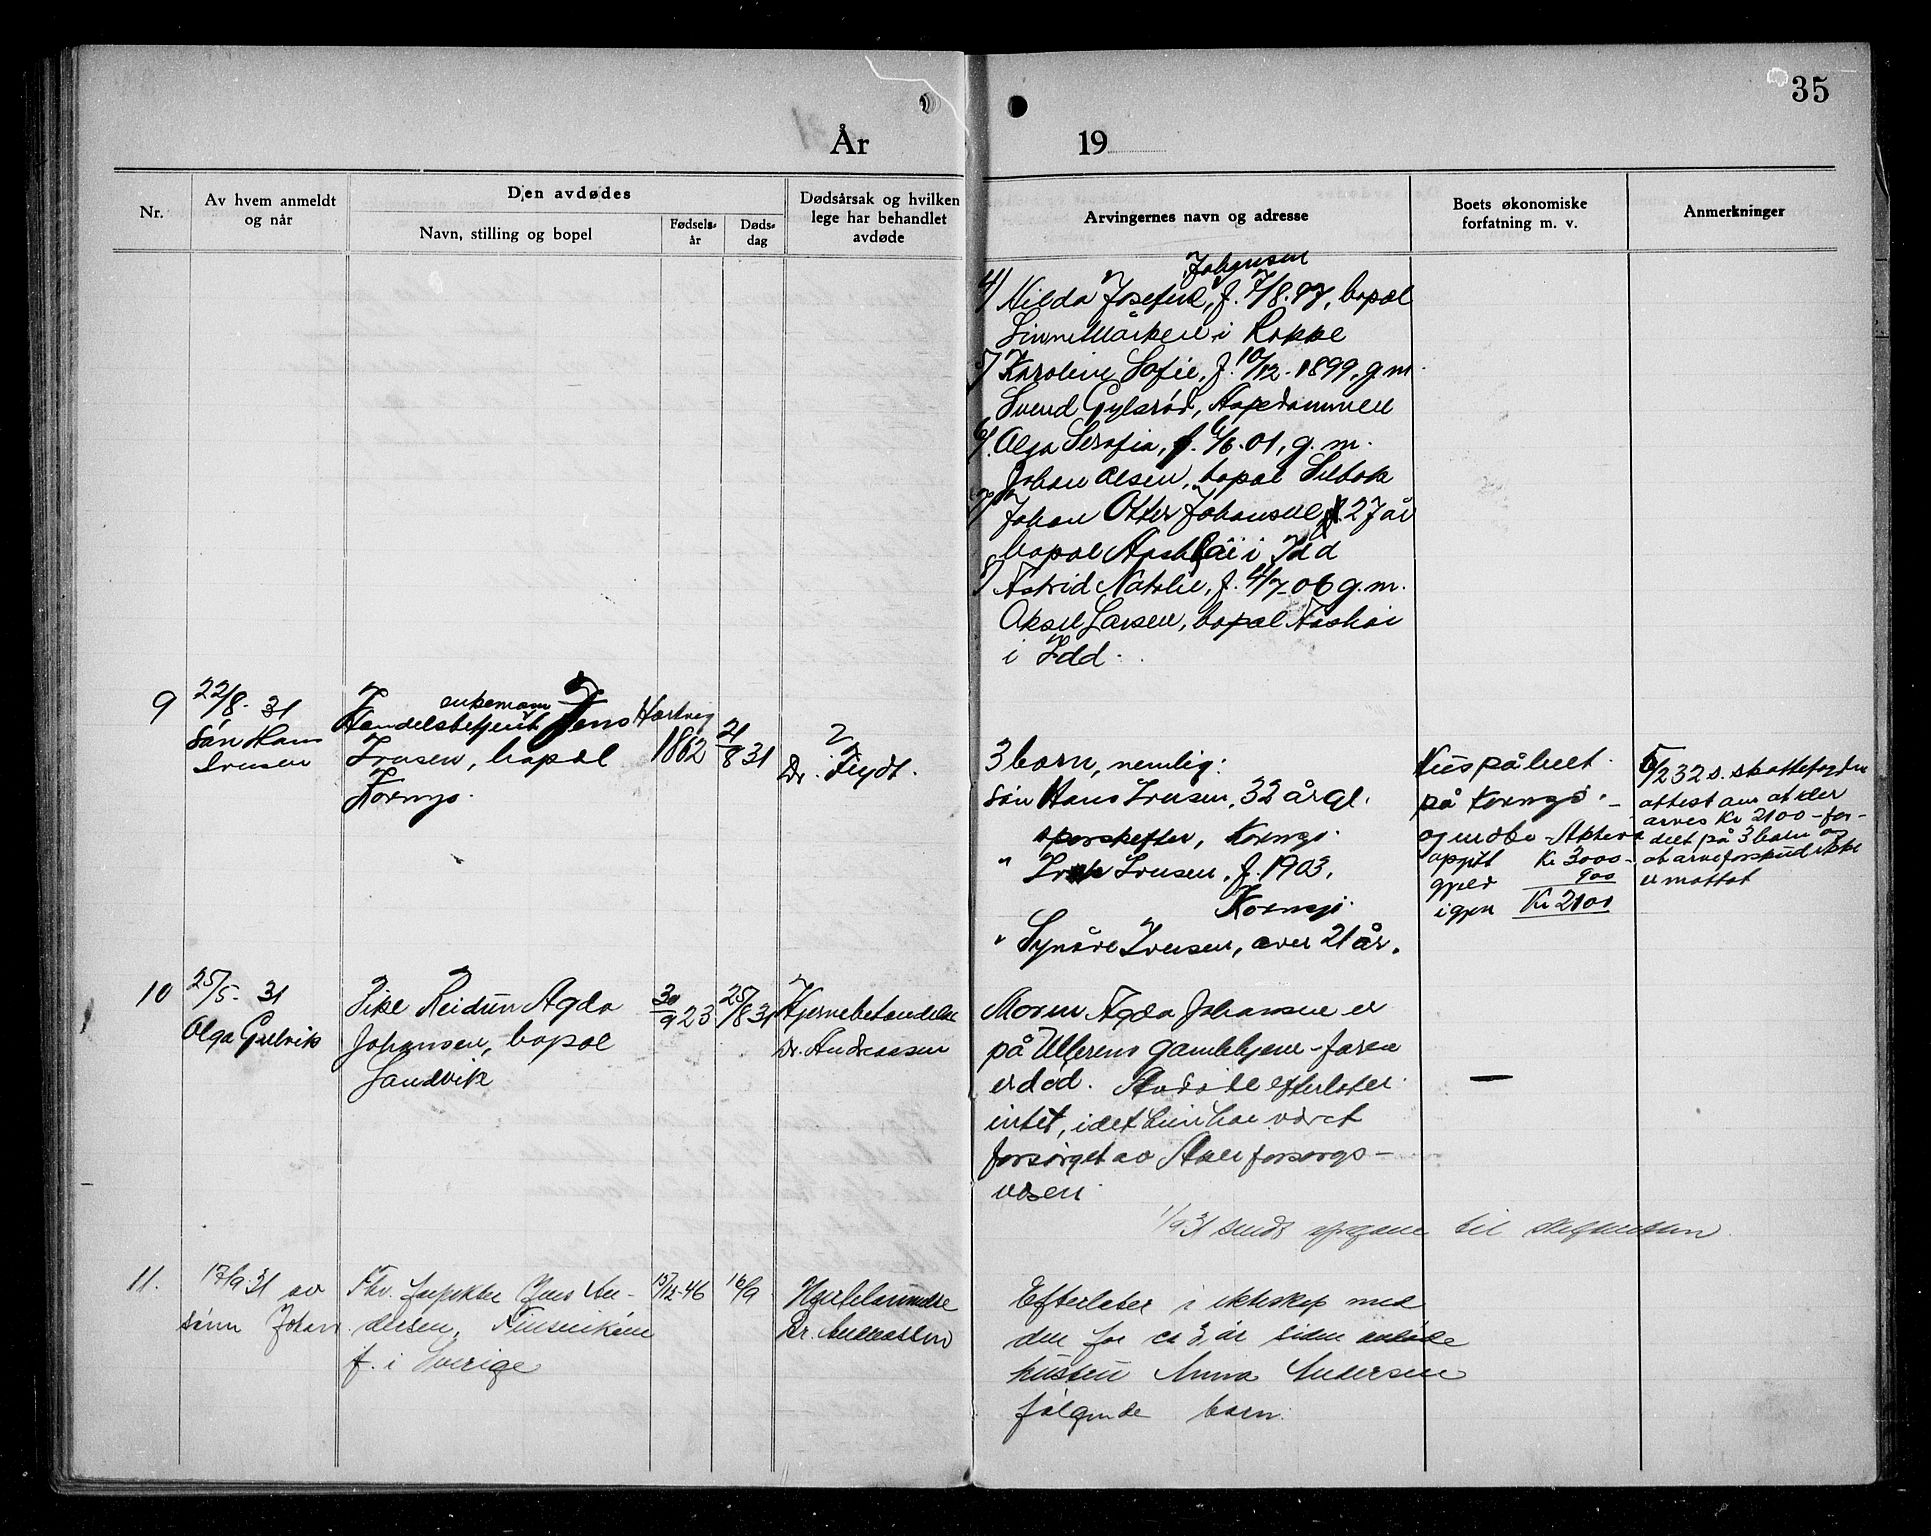 35
År 19
Nr.
Av hvem anmeldt
og når
Den avdødes
Navn, stilling og bopel
Fødsels-
år
Døds-
dag
Dødsårsak og hvilken
lege har behandlet
avdøde
Arvingernes navn og adresse
Boets økonomiske
forfatning m. v.
Anmerkninger
Johansen
4) Hilda Josefine, f. 7/8.97, bopæl
i Rokke
5) Karoline Sofie, f. 10/12-1899, g.m.
Svend Gylsrød, Aspedammen
6) Olga Serafia, f. 6/6.01, g. m.
Johan Olsen, bopæl
7) Johan Otter Johansen 27 år
bopæl i Idd
8) Astrid Natalie, f. 4/7-06 g.m.
Aksel Larsen, bopæl
i Idd.
9
22/8. 31
Søn Hans
Iversen
enkemann
Handelsbetjent Jens Hartvig
Iversen, bopæl
Kornsjø.
1862
21/8 31
?
Dr.
3 barn, nemlig:
Søn Hans Iversen, 32 år gl.
Kornsjø.
" Iversen, f. 1903.
Kornsjø.
" Synøve Iversen, over 21 år.
Hus på
på Kornsjø.
opgitt Kr 3000-
gjeld 900
igjen Kr 2100
6/2 32 s. skattefogden
attest om at der
arves Kr 2100 - for-
delt på 3 barn og
at arveforskud ikke
er mottat
10
25/5. 31
Olga Gulvik
Pike Reidun Agda
Johansen, bopæl
Sandvik
30/9 23
25/8 31
Hjernebetændelse
Dr. Andreassen
Moren Agda Johansen er
på Ullerens gamlehjem - faren
er død. Avdøde efterlater
intet, idet hun har været
forsørget av forsorgs-
vesen.
—
1/9 31 sendt til
11.
17/9.31 av
sønn Johan
Fhv. Jens An-
dersen,
f. i Sverige
15/12-46
16/9
Dr. Andreassen
Efterlater i ekteskap med
den for ca 3 år siden avdøde
hustru Anna Andersen
følgende barn: